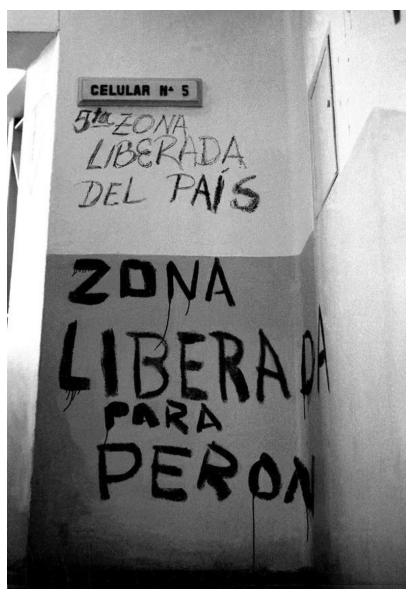 CELULAR Nº 5
5ta ZONA
LIBERADA
DEL PAÍS
ZONA
LIBERADA
PARA
PERON